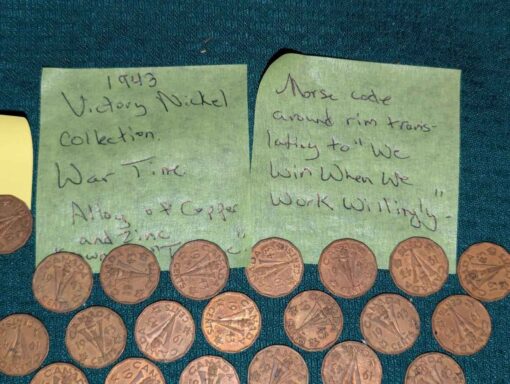 1943
Victory Nickel
Collection
War Time
Alloy of Copper
and Zinc
"
Morse code
around rim trans-
lating to "We
Win When We
Work Willingly".